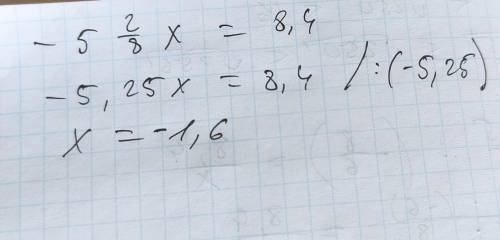 - 5 2/8 x = 8,4
- 5,25x = 8,4 /:(-5,25)
x = -1,6